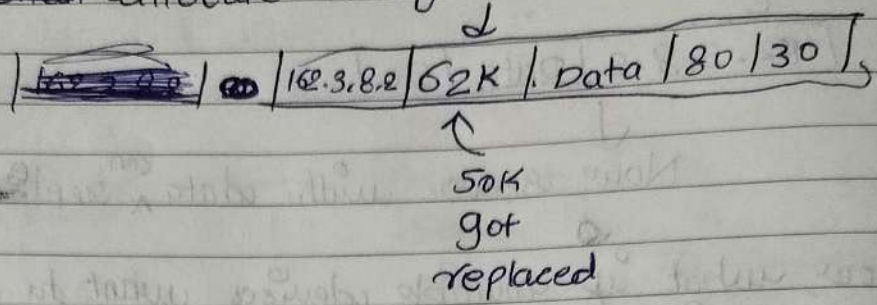 d
162.3.8.2 | 62K | Data | 80 | 30
50K
got
replaced